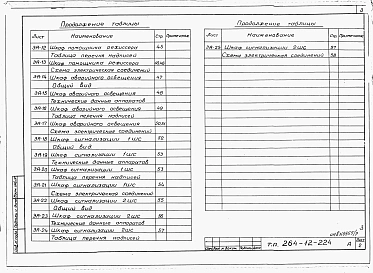 3
Продолжение таблицы
Лист Наименование Стр. Примечание
ЭЛ-12 Шкаф помощника режиссера 45
Таблица перечня надписей
ЭЛ-13 Шкаф помощника режиссера
Схема электрическая соединений
ЭЛ-14 Шкаф аварийного освещения 47
Общий вид
ЭЛ-15 Шкаф аварийного освещения 48
Технические данные аппаратов
ЭЛ-16 Шкаф аварийного освещения 49
Таблица перечня надписей
ЭЛ-17 Шкаф аварийного освещения
Схема электрическая соединений
ЭЛ-18 Шкаф сигнализации 1ШС 52
Общий вид
ЭЛ-19 Шкаф сигнализации 1ШС 53
Технические данные аппаратов
ЭЛ-20 Шкаф сигнализации 1ШС 53
Таблица перечня надписей
ЭЛ-21 Шкаф сигнализации 1ШС 54
Схема электрическая соединений
ЭЛ-22 Шкаф сигнализации 2ШС 55
Общий вид
ЭЛ-23 Шкаф сигнализации 2ШС 56
Технические данные аппаратов
ЭЛ-24 Шкаф сигнализации 2ШС 57
Таблица перечня надписей
Продолжение таблицы
Лист Наименование Стр. Примечание
ЭЛ-25 Шкаф сигнализации 2ШС 57
Схема электрическая соединений 58
3
т.п. 264-12-224 А
Лист
2